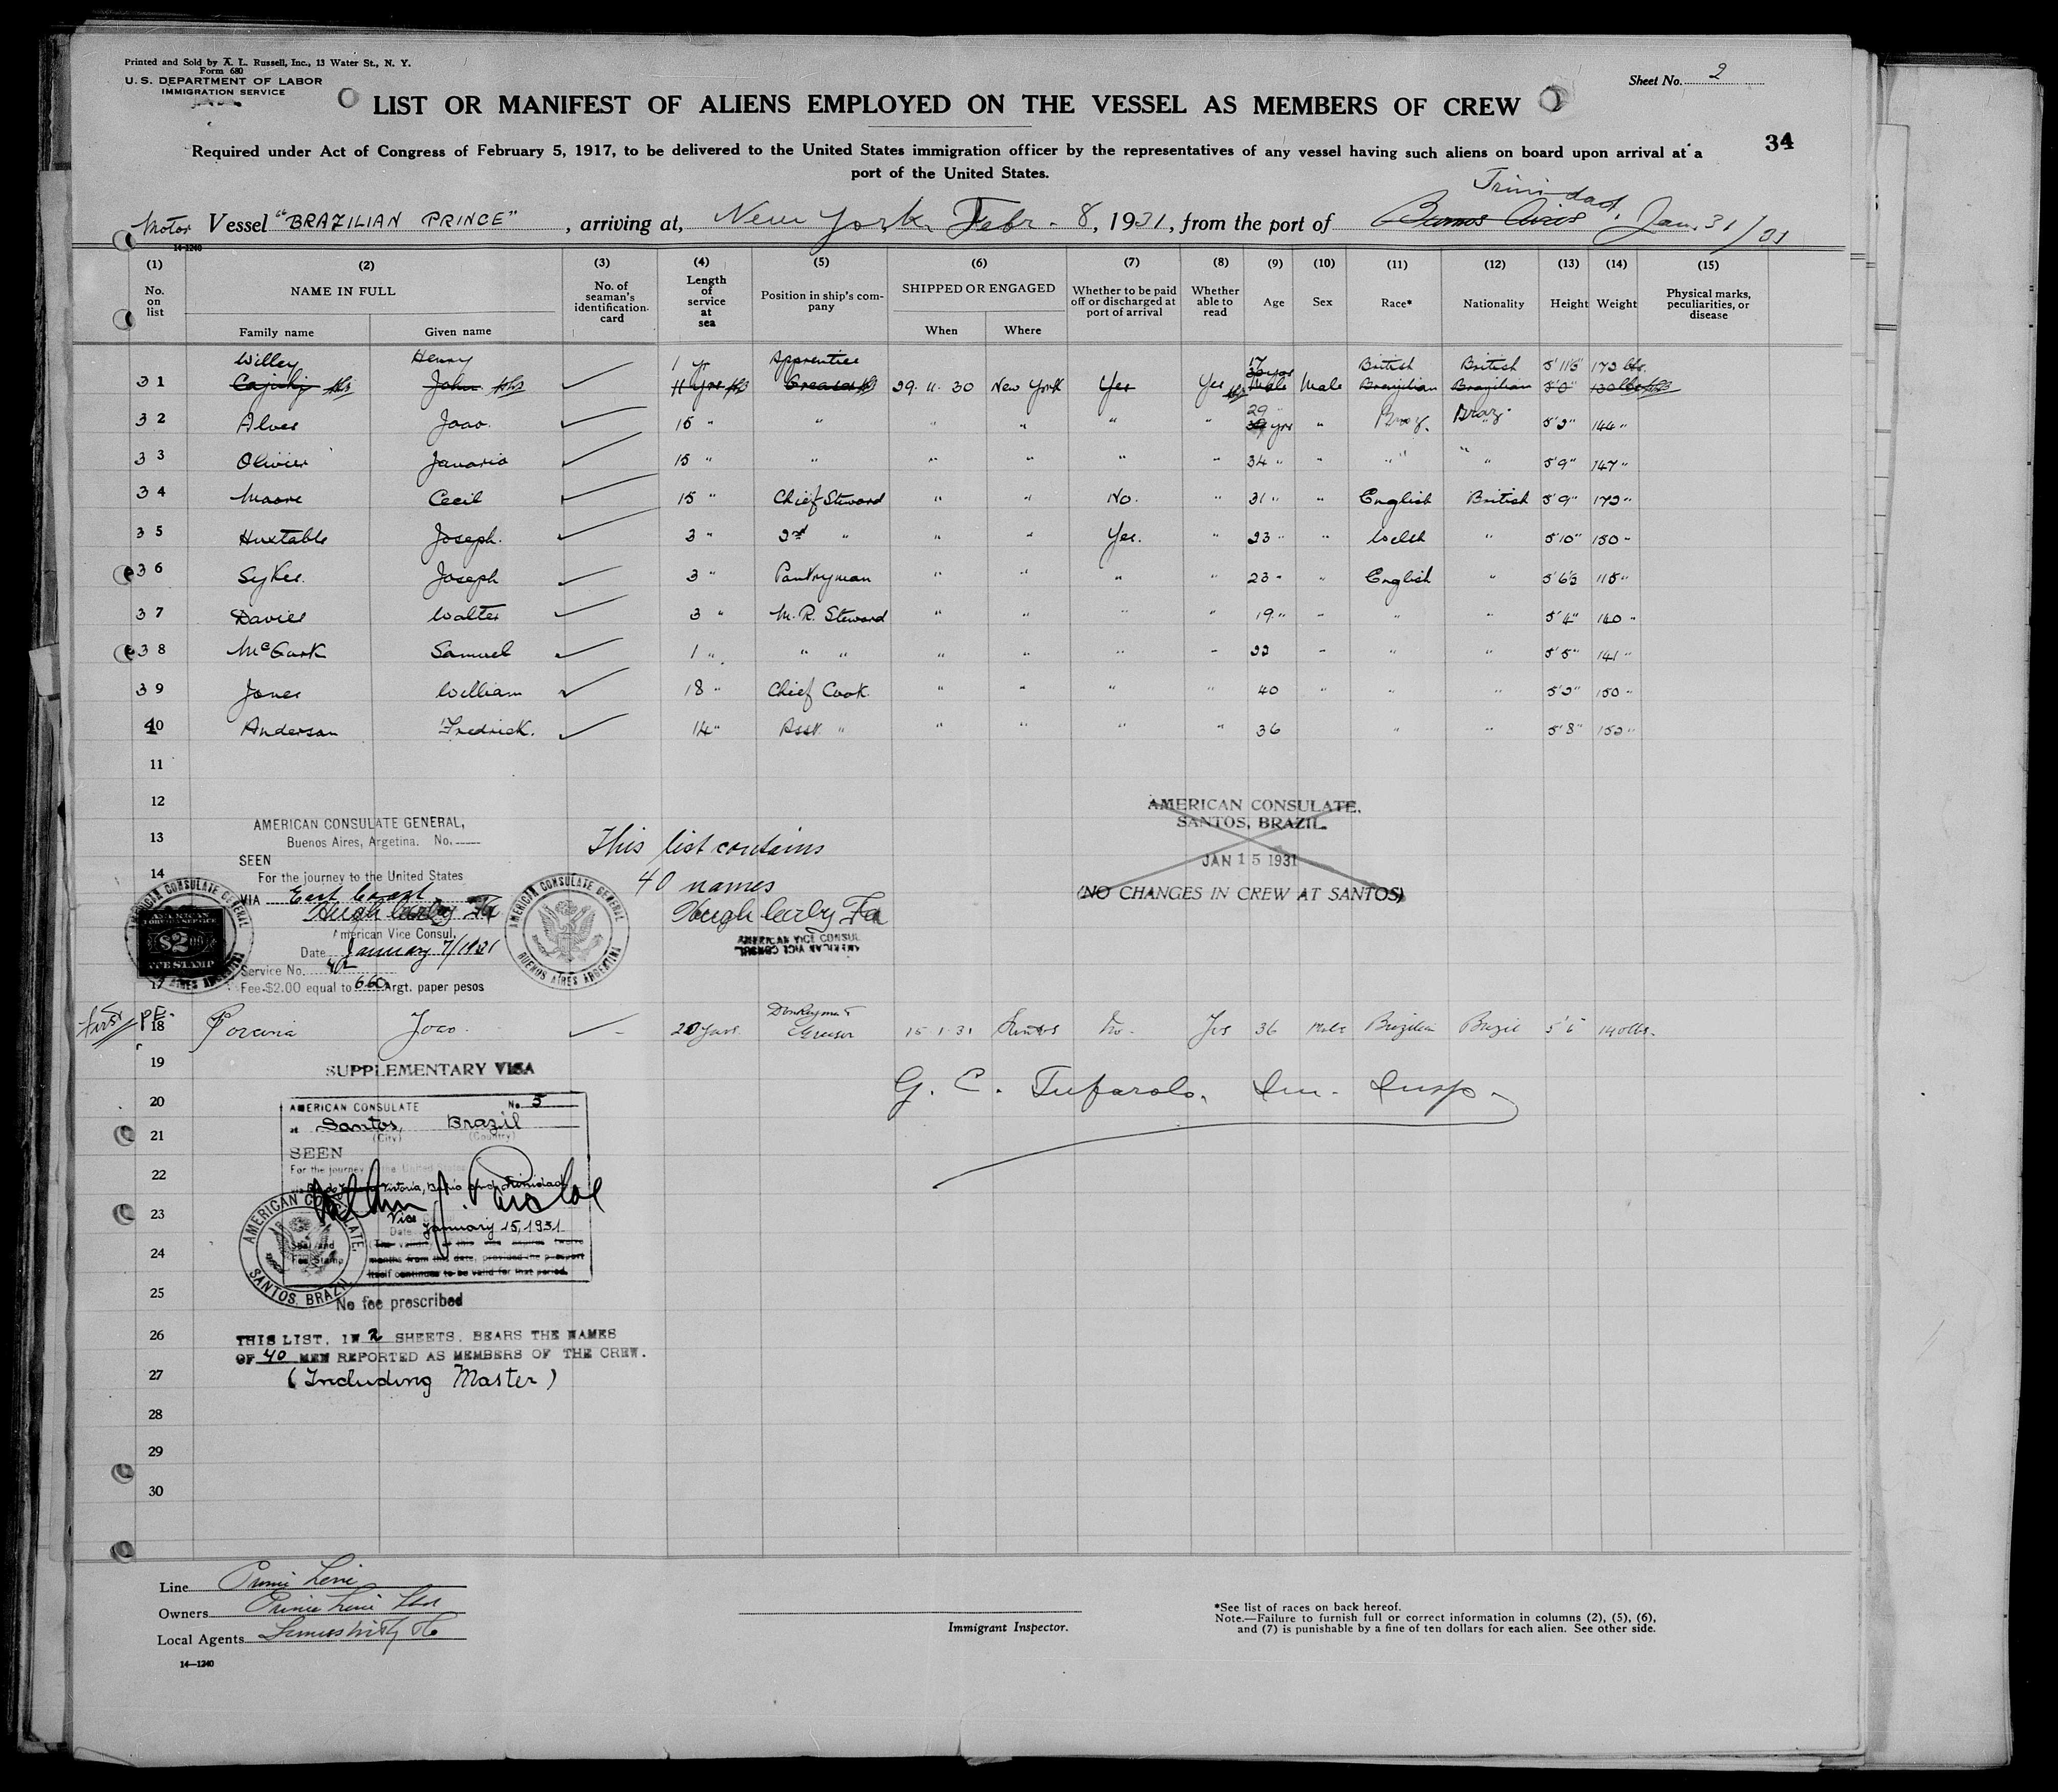 Printed and Sold by A. L. Russell, Inc., 13 Water St., N. Y.
Form 680
U. S. DEPARTMENT OF LABOR
IMMIGRATION SERVICE
Sheet No. 2
LIST OR MANIFEST OF ALIENS EMPLOYED ON THE VESSEL AS MEMBERS OF CREW
34
Required under Act of Congress of February 5, 1917, to be delivered to the United States immigration officer by the representatives of any vessel having such aliens on board upon arrival at a
port of the United States.
Trinidad,
Motor Vessel "BRAZILIAN PRINCE", arriving at, New York, Febr - 8, 1931, from the port of Buenos Aires Jan. 31/31
14-1240
(1) (2) (3) (4) (5) (6) (7) (8) (9) (10) (11) (12) (13) (14) (15)
No. on list NAME IN FULL Family name Given name No. of seaman's identification card Length of service at sea Position in ship's company SHIPPED OR ENGAGED When Where Whether to be paid off or discharged at port of arrival Whether able to read Age Sex Race* Nationality Height Weight Physical marks, peculiarities, or disease
Willey Henry 1 yr Apprentice 17 British British 5'11'5 173 lbs.
31 John Greaser 29.11.30 New York Yes Yes Male Male Brazilian Brazilian 5'8" 130 lbs
29
32 Alves Joao. 15 " " " " " " yrs " Braz. Braz. 5'2" 144 "
33 Olivier Janario 15 " " " " " " 34 " " " " 5'9" 147 "
34 Moore Cecil 15 " Chief Steward " " No. " 31 " " English British 5'9" 172 "
35 Huxtable Joseph. 3 " 2nd " " " Yes. " 23 " " Welsh " 5'10" 150 "
36 Sykes. Joseph 3 " Pantryman " " " " 23 " " English " 5'6'5 115 "
37 Davies Walter 3 " M. R. Steward " " " " 19 " " " " 5'4" 140 "
38 McGurk Samuel 1 " " " " " " " 22 " " " 5'5" 141 "
39 Jones William 18 " Chief Cook. " " " " 40 " " " 5'2" 150 "
40 Anderson Fredrick. 14 " Asst. " " " " " 36 " " 5'8" 152 "
11
12
AMERICAN CONSULATE,
SANTOS, BRAZIL.
JAN 15 1931
(NO CHANGES IN CREW AT SANTOS)
13
AMERICAN CONSULATE GENERAL,
Buenos Aires, Argetina. No.
SEEN
14
For the journey to the United States
VIA East Coast
American Vice Consul.
Date January 7/1931
Service No. 42
Fee $2.00 equal to 6.60 Argt. paper pesos
AMERICAN CONSULATE GENERAL
BUENOS AIRES ARGENTINA
AMERICAN
$2.00
FEE STAMP
AMERICAN CONSULATE GENERAL
BUENOS AIRES ARGENTINA
This list contains
40 names
AMERICAN VICE CONSUL
AMERICAN VICE CONSUL
17
First
18 Joao. 20 years. Donkeyman & Greaser 15.1.31 Santos No. Yes 36 Male Brazilian Brazil 5'6 140 lbs.
19
SUPPLEMENTARY VISA
20
G. C. Tufarolo, Im. Insp.
AMERICAN CONSULATE No. 5
at Santos, Brazil
(City) (Country)
21
SEEN
For the journey to the United States
22
Victoria, Bahia and Trinidad
23
Vice
Date January 15, 1931
24
Seal and
Fee Stamp
(The validity of this visa expires twelve
months from this date, provided the passport
itself continues to be valid for that period.
AMERICAN CONSULATE,
SANTOS, BRAZIL
25
No fee prescribed
26
THIS LIST, IN 2 SHEETS, BEARS THE NAMES
OF 40 MEN REPORTED AS MEMBERS OF THE CREW.
27
(Including Master)
28
29
30
Line Prince Line
Owners Prince Line Ltd
Local Agents
14-1240
Immigrant Inspector.
*See list of races on back hereof.
Note.—Failure to furnish full or correct information in columns (2), (5), (6),
and (7) is punishable by a fine of ten dollars for each alien. See other side.